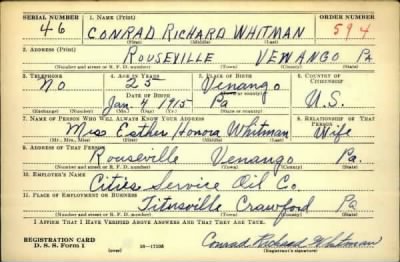 SERIAL NUMBER 1. NAME (Print) ORDER NUMBER
46 CONRAD RICHARD WHITMAN 594
(First) (Middle) (Last)
2. ADDRESS (Print)
ROUSEVILLE VENANGO PA
(Number and street or R. F. D. number) (Town) (County) (State)
3. TELEPHONE 4. AGE IN YEARS 5. PLACE OF BIRTH 6. COUNTRY OF CITIZENSHIP
No 25 Venango U.S.
DATE OF BIRTH
Jan. 4 1915 Pa
(Exchange) (Number) (Mo.) (Day) (Yr.) (State or country)
7. NAME OF PERSON WHO WILL ALWAYS KNOW YOUR ADDRESS 8. RELATIONSHIP OF THAT PERSON
Miss Esther Honora Whitman Wife
(Mr., Mrs., Miss) (First) (Middle) (Last)
9. ADDRESS OF THAT PERSON
Rouseville Venango Pa.
(Number and street or R. F. D. number) (Town) (County) (State)
10. EMPLOYER'S NAME
Cities Service Oil Co.
11. PLACE OF EMPLOYMENT OR BUSINESS
Titusville Crawford Pa
(Number and street or R. F. D. number) (Town) (County) (State)
I AFFIRM THAT I HAVE VERIFIED ABOVE ANSWERS AND THAT THEY ARE TRUE.
REGISTRATION CARD
D. S. S. Form 1 (over) 16—17105 Conrad Richard Whitman
(Registrant's signature)